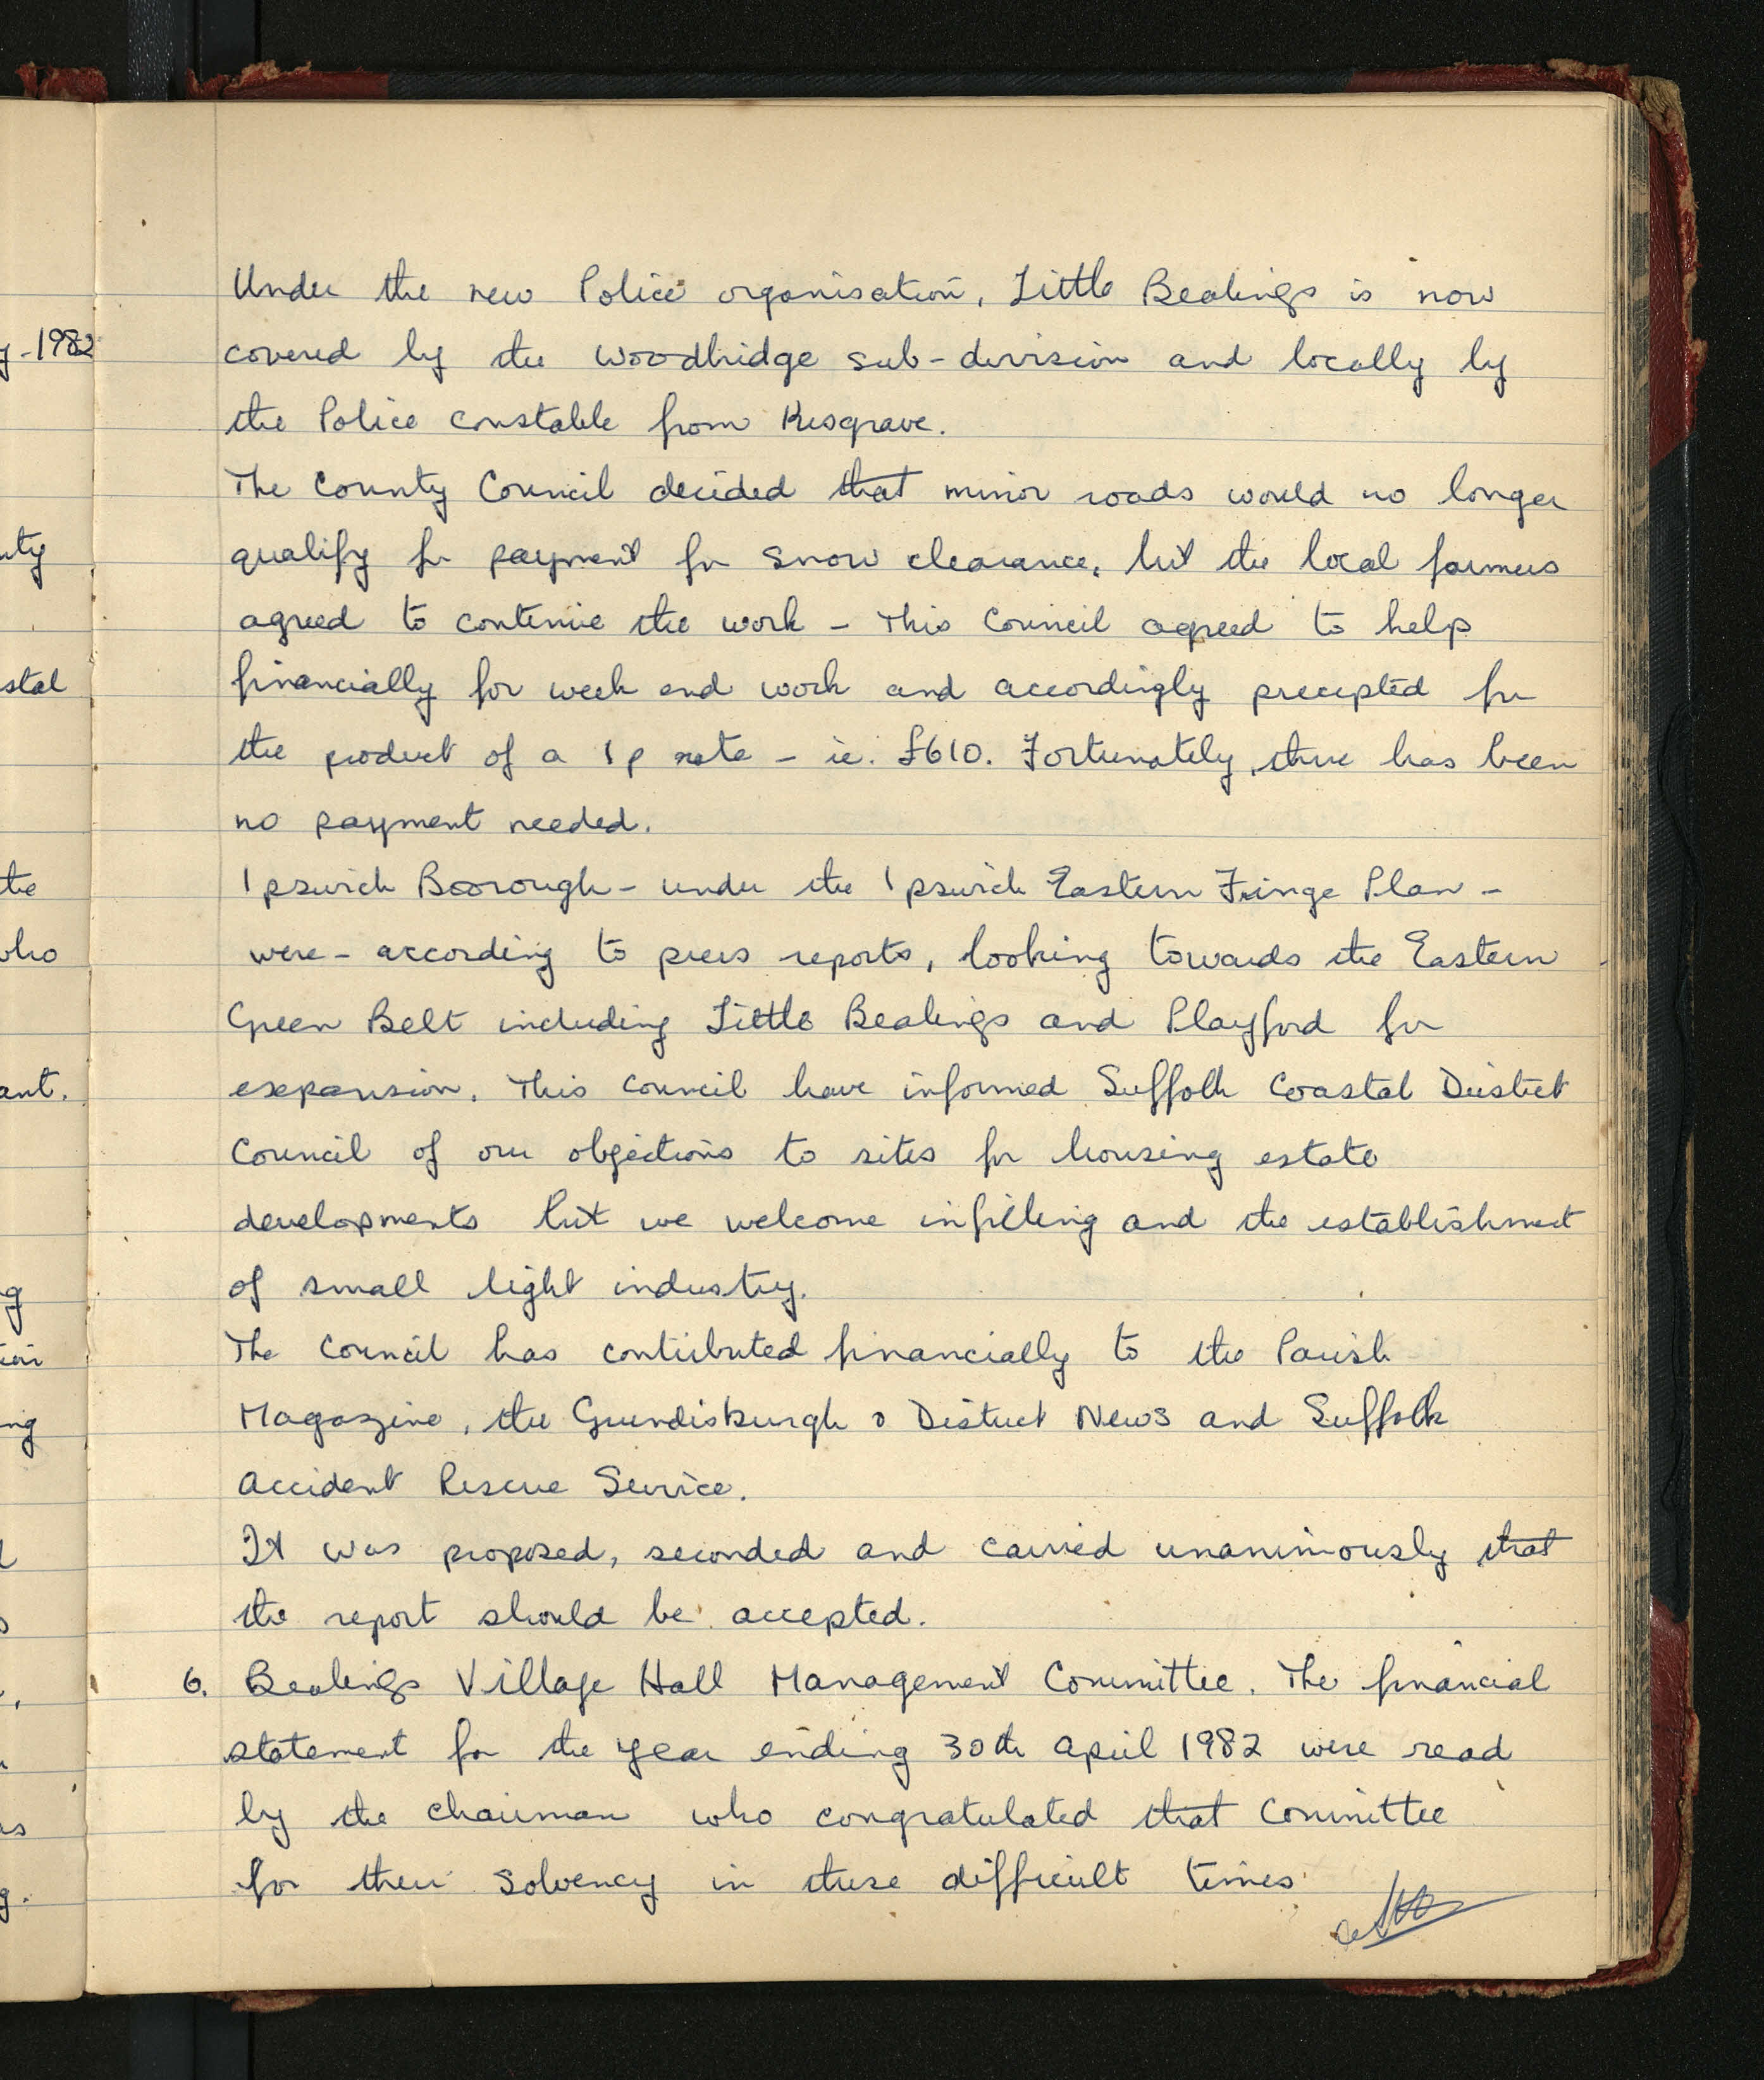 Under the new Police organisation, Little Bealings is now
covered by the Woodbridge sub-division and locally by
the Police constable from Kesgrave.
The County Council decided that minor roads would no longer
qualify for payment for snow clearance, but the local farmers
agreed to continue the work - This Council agreed to help
financially for week end work and accordingly precepted for
the product of a 1p rate - ie. £610. Fortunately, there has been
no payment needed.
Ipswich Boorough - under the Ipswich Eastern Fringe Plan -
were - according to press reports, looking towards the Eastern
Green Belt including Little Bealings and Playford for
expansion. This Council have informed Suffolk Coastal District
Council of our objections to sites for housing estate
developments but we welcome infilling and the establishment
of small light industry.
The Council has contributed financially to the Parish
Magazine, the Grundisburgh & District News and Suffolk
Accident Rescue Service.
It was proposed, seconded and carried unanimously that
the report should be accepted.
6. Bealings Village Hall Management Committee. The financial
statement for the year ending 30th April 1982 were read
by the Chairman who congratulated that Committee
for their solvency in these difficult times
y - 1982
uty
stal
the
who
ant.
g
ion
ing
as
g.